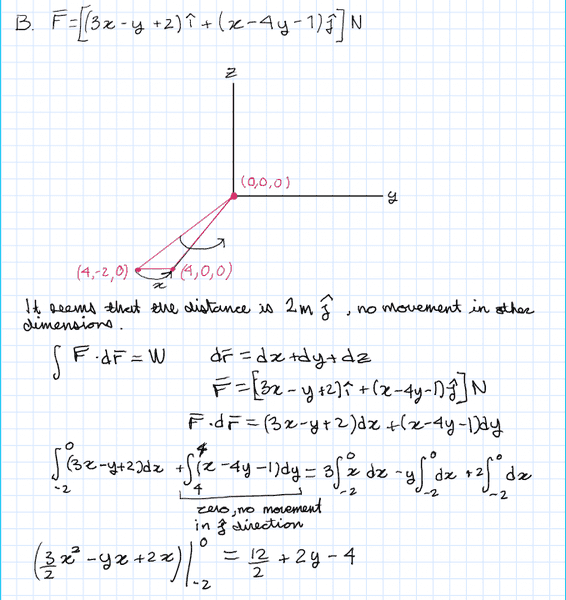 B. F̄=[(3x-y+2)î+(x-4y-1)ĵ]N
z
(0,0,0)
y
(4,-2,0)
(4,0,0)
x
It seems that the distance is 2m ĵ, no movement in other
dimensions.
∫ F̄·dr̄=W dr̄=dx+dy+dz
F̄=[3x-y+2)î+(x-4y-1)ĵ]N
F̄·dr̄=(3x-y+2)dx+(x-4y-1)dy
∫₋₂⁰(3x-y+2)dx+∫₄⁴(x-4y-1)dy=3∫₋₂⁰x dx-y∫₋₂⁰dx+2∫₋₂⁰dx
zero, no movement
in ĵ direction
(3/2 x²-yx+2x)|₋₂⁰ = 12/2+2y-4